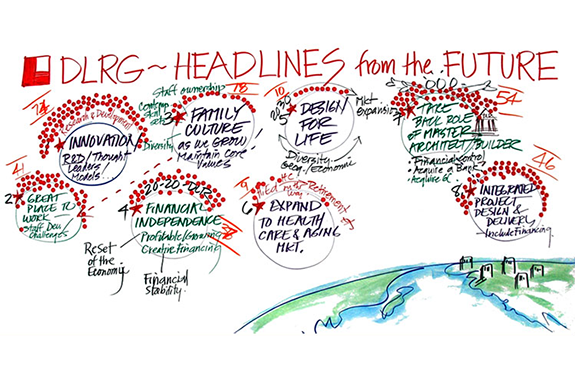 DLRG ~ HEADLINES from the FUTURE
74
Research & Development
INNOVATION
R&D / Thought
Leaders
Models...
Staff ownership
78
3
FAMILY
CULTURE
AS WE GROW
Maintain Core
Values
Diversity
10
5
DESIGN
FOR
LIFE
Mkt
Expansion
Diversity
Geog. / Economic
54
7
TAKE
BACK ROLE OF
MASTER
ARCHITECT / BUILDER
Financial control
Acquire a Bank
41
2
GREAT
PLACE TO
WORK
Staff Dev
Challenges
20-20
4
FINANCIAL
INDEPENDENCE
Profitable / Growing
Creative Financing
Reset
of the
Economy
Financial
Stability.
6
EXPAND
TO HEALTH
CARE & AGING
MKT.
46
8
INTEGRATED
PROJECT
DESIGN &
DELIVERY
Include Financing